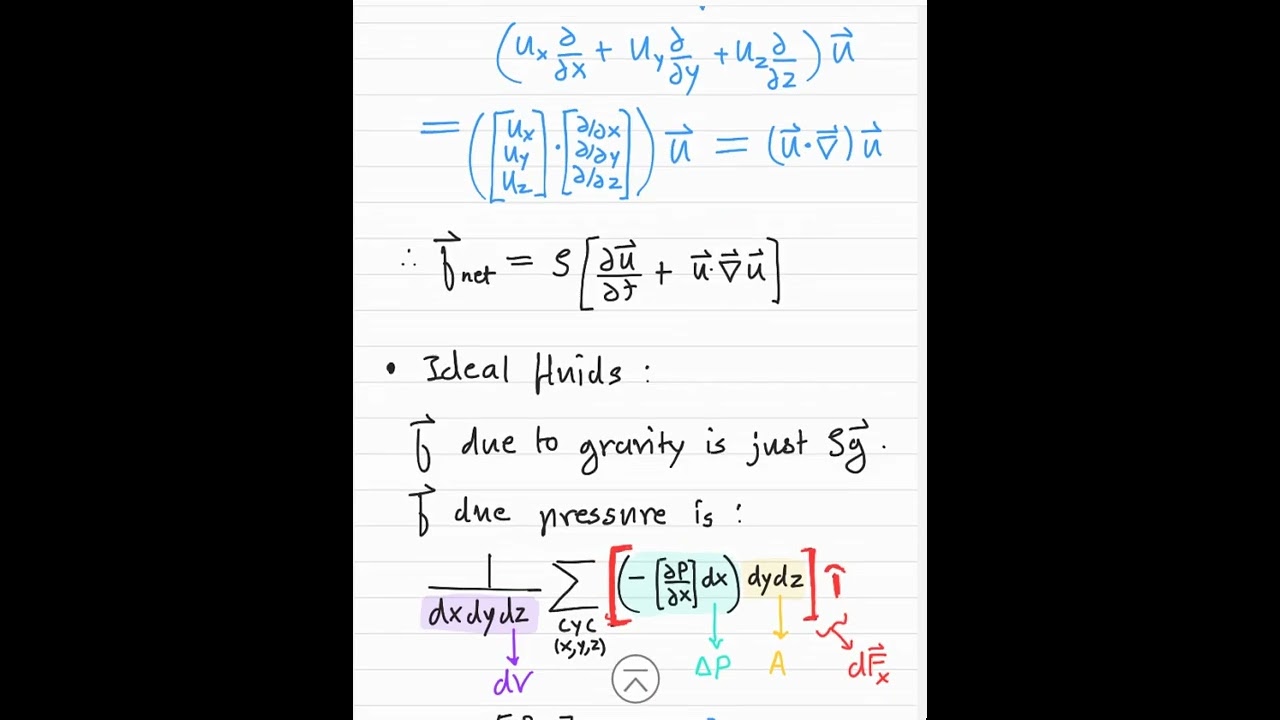 (uₓ ∂/∂x + u_y ∂/∂y + u_z ∂/∂z) u⃗
= ([uₓ u_y u_z] · [∂/∂x ∂/∂y ∂/∂z]) u⃗ = (u⃗·∇⃗) u⃗
∴ f⃗net = ρ [∂u⃗/∂t + u⃗·∇⃗u⃗]
• Ideal fluids :
f⃗ due to gravity is just ρg⃗.
f⃗ due pressure is :
1/(dxdydz) Σ [(-[∂P/∂x] dx) dydz] î
cyc
(x,y,z)
dV ΔP A dF⃗ₓ